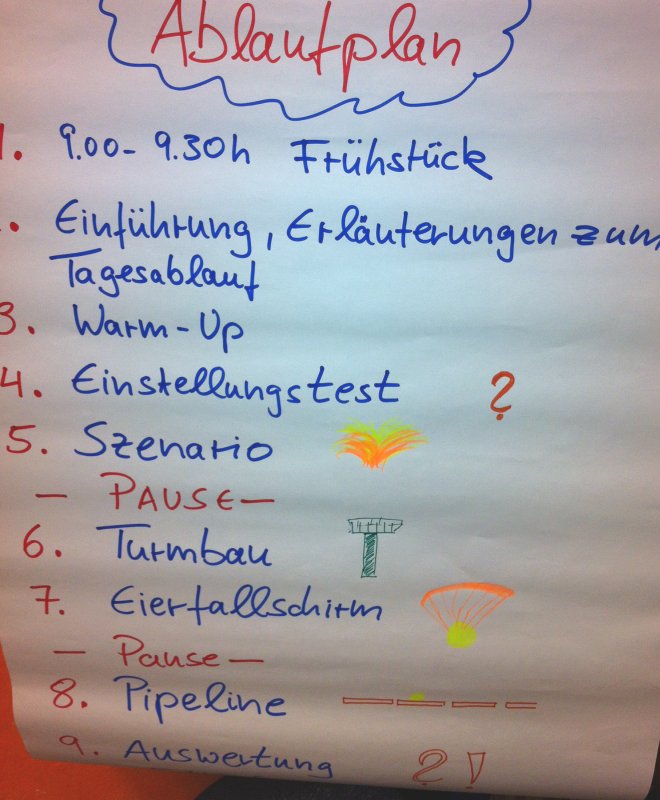 Ablaufplan
1. 9.00 - 9.30h Frühstück
. Einführung, Erläuterungen zum
Tagesablauf
3. Warm-Up
4. Einstellungstest ?
5. Szenario
- PAUSE -
6. Turmbau
7. Eierfallschirm
- Pause -
8. Pipeline
9. Auswertung ? !